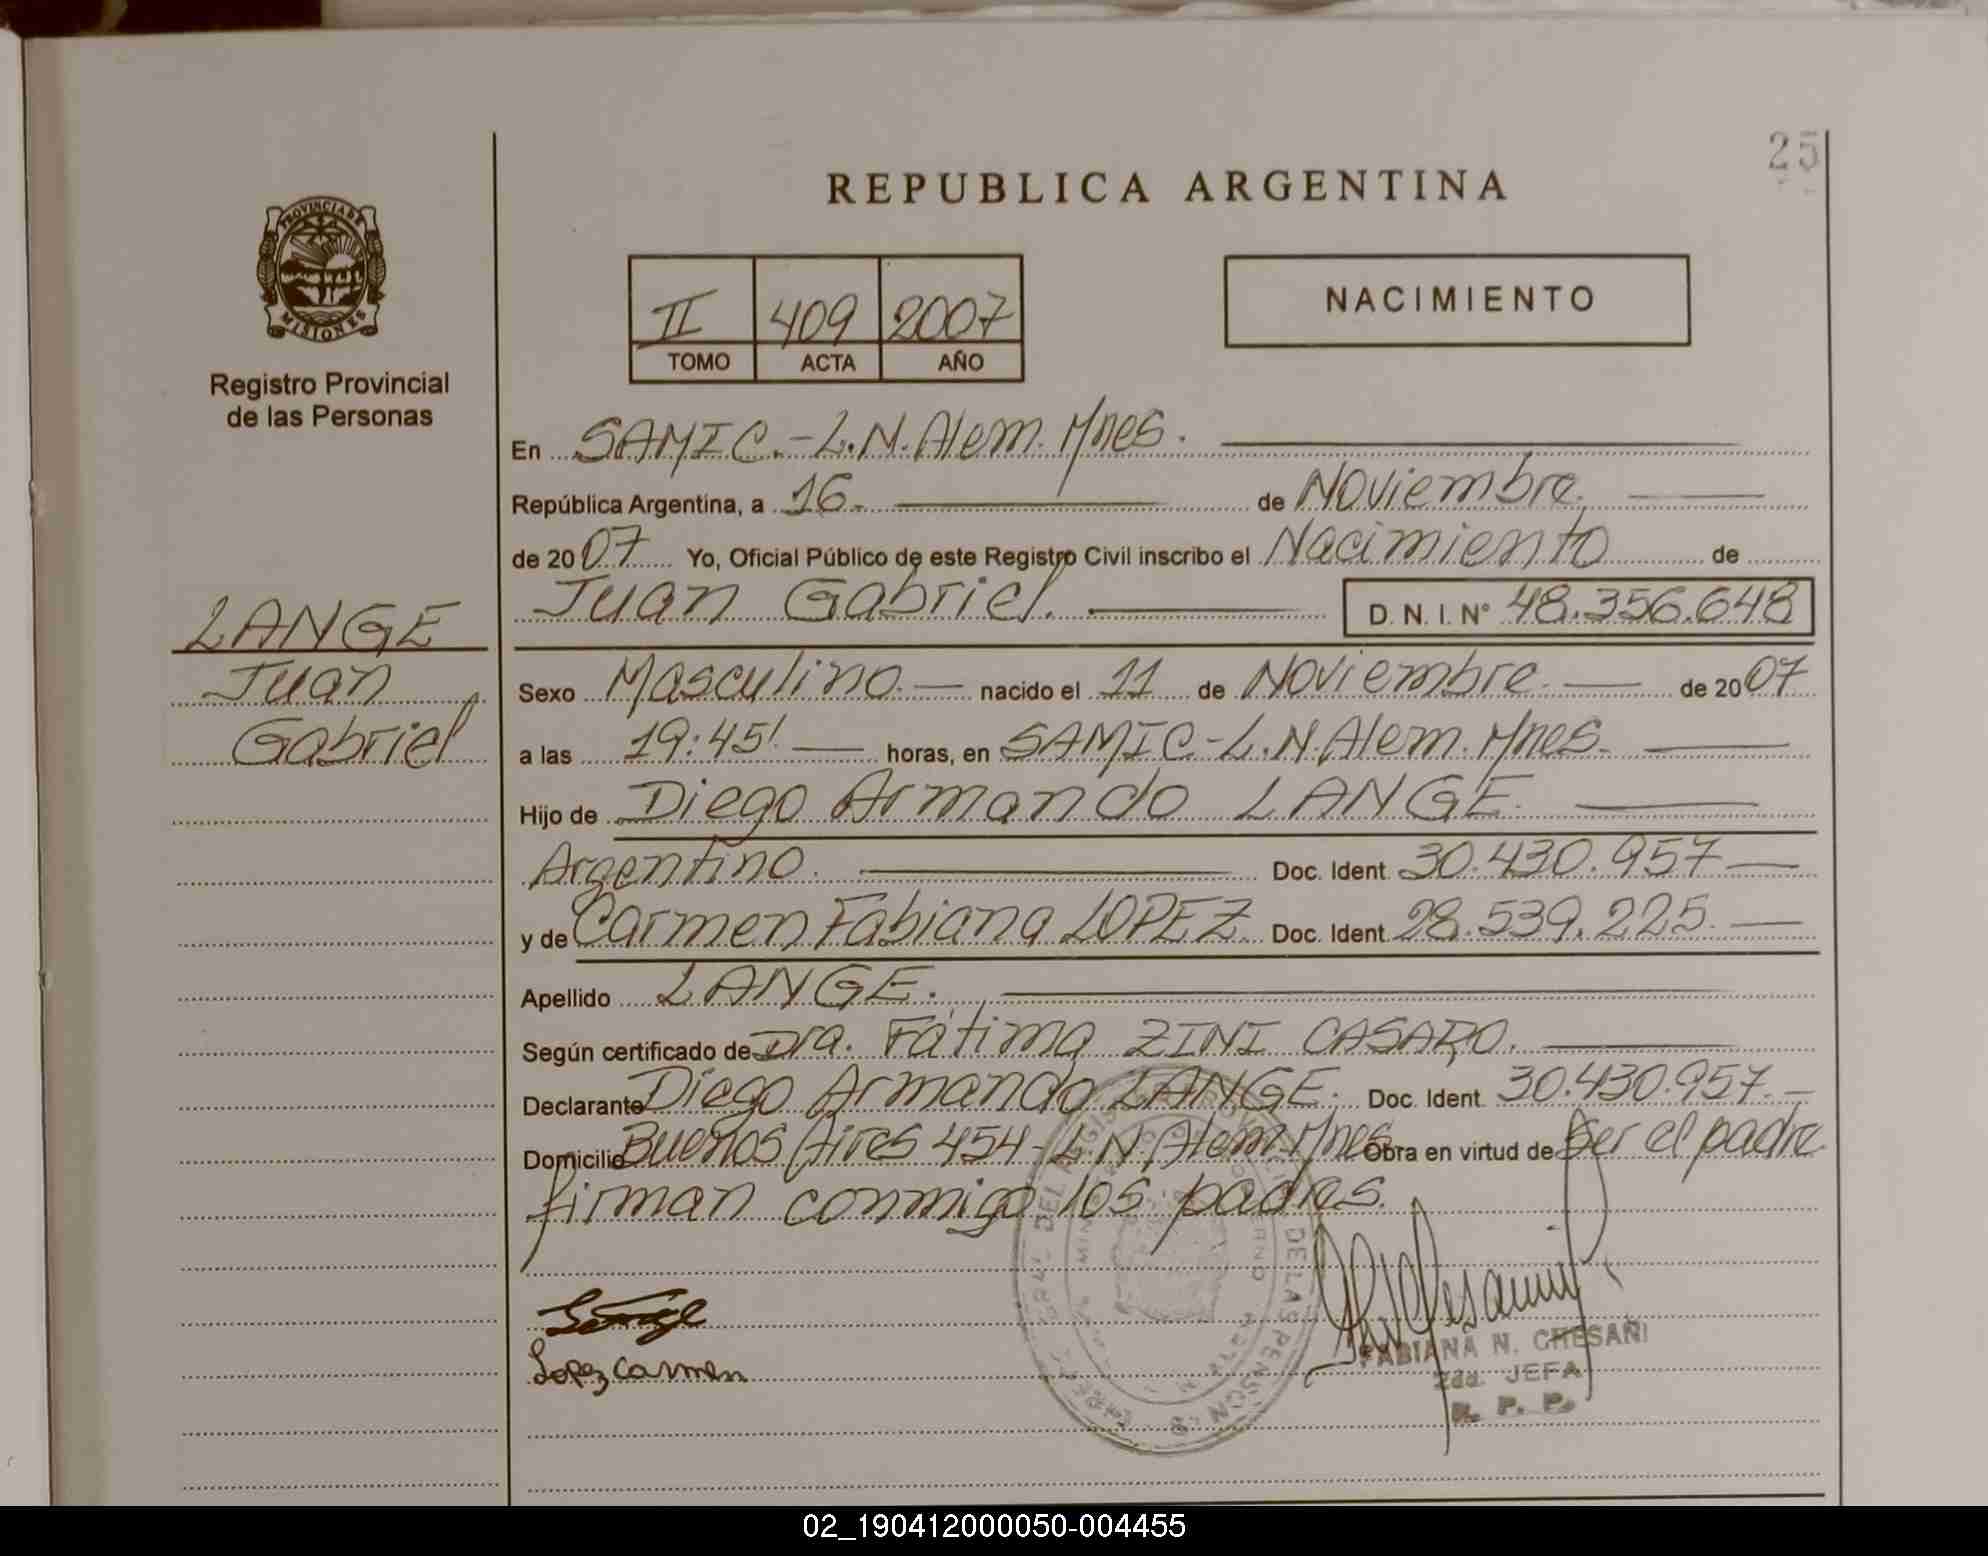 25
REPUBLICA ARGENTINA
PROVINCIA DE
MISIONES
Registro Provincial
de las Personas
II 409 2007
TOMO ACTA AÑO
NACIMIENTO
En SAMIC.-L.N.Alem.Mnes.
República Argentina, a 16. de Noviembre.
de 2007 Yo, Oficial Público de este Registro Civil inscribo el Nacimiento de
Juan Gabriel. D.N.I.Nº 48.356.648
LANGE
Juan
Gabriel
Sexo Masculino.— nacido el 11 de Noviembre.— de 2007
a las 19:45'.— horas, en SAMIC-L.N.Alem.Mnes.
Hijo de Diego Armando LANGE.
Argentino. Doc. Ident. 30.430.957—
y de Carmen Fabiana LOPEZ. Doc. Ident. 28.539.225.—
Apellido LANGE.
Según certificado de Dra. Fátima ZINI CASARO.
Declarante Diego Armando LANGE. Doc. Ident. 30.430.957.—
Domicilio Buenos Aires 454-L.N.Alem.Mnes Obra en virtud de Ser el padre
firman conmigo los padres.
Lange
Lopez Carmen
FABIANA N. CHESANI
2da. JEFA
R. P. P.
02_190412000050-004455